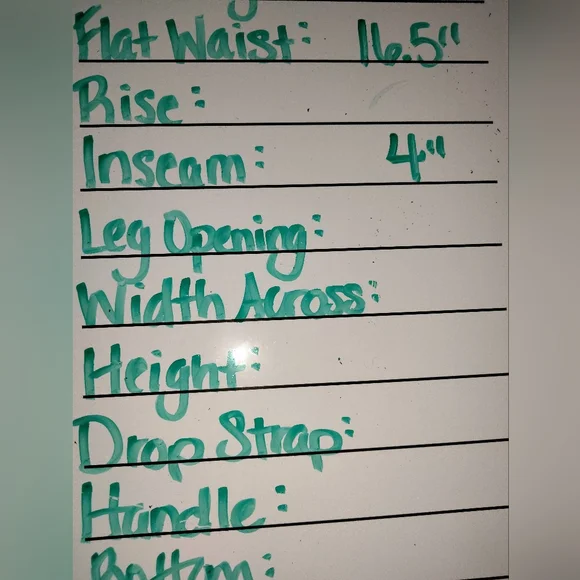 Flat Waist: 16.5"
Rise:
Inseam: 4"
Leg Opening:
Width Across:
Height:
Drop Strap:
Handle:
Bottom: